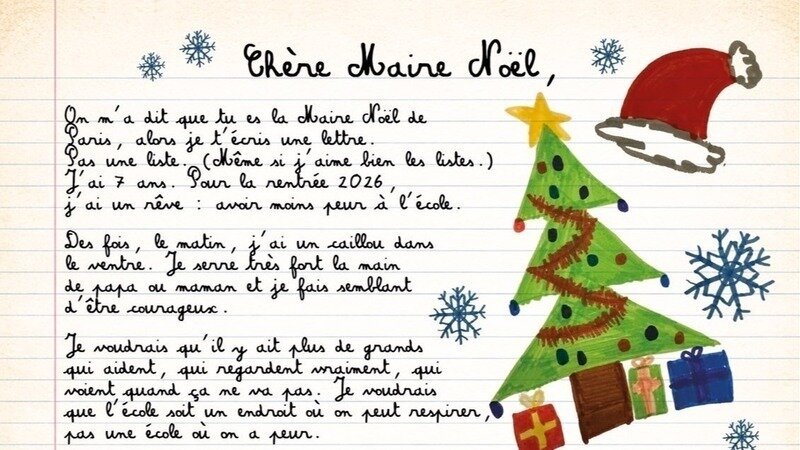 Chère Maire Noël,
On m'a dit que tu es la Maire Noël de
Paris, alors je t'écris une lettre.
Pas une liste. (Même si j'aime bien les listes.)
J'ai 7 ans. Pour la rentrée 2026,
j'ai un rêve : avoir moins peur à l'école.
Des fois, le matin, j'ai un caillou dans
le ventre. Je serre très fort la main
de papa ou maman et je fais semblant
d'être courageux.
Je voudrais qu'il y ait plus de grands
qui aident, qui regardent vraiment, qui
voient quand ça ne va pas. Je voudrais
que l'école soit un endroit où on peut respirer,
pas une école où on a peur.